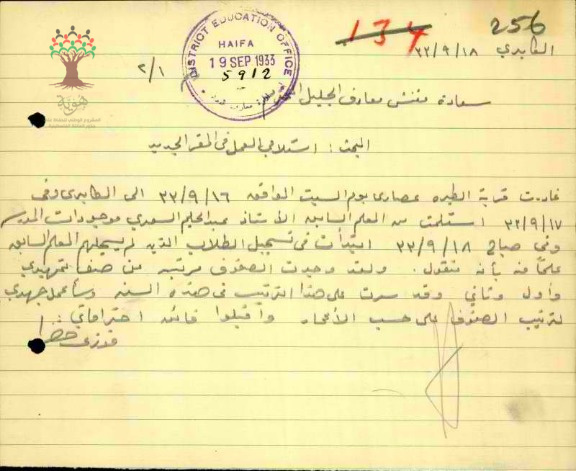 256
134
الكابري ٣٣/٩/١٨
DISTRICT EDUCATION OFFICE
HAIFA
19 SEP 1933
5912
٢/١
هوية
سعادة مفتش معارف الجليل
البحث: استلامي العمل في المقر الجديد
غادرت قرية الطيره عصاري يوم السبت الواقع ٣٣/٩/١٦ الى الكابري وفي
٣٣/٩/١٧ استلمت من المعلم السابق الأستاذ عبد الحليم السعدي موجودات المدرسة
وفي صباح ٣٣/٩/١٨ ابتدأت في تسجيل الطلاب الذين لم يسجلهم المعلم السابق
علماً منه بأنه منقول. ولقد وجدت الصفوف مرتبه من صف تمهيدي
وأول وثاني وقد سرت على هذا الترتيب في هذه السنه وسأعمل جهدي
لترتيب الصفوف على حسب الأعمار واقبلوا فائق احتراماتي:
فوزي